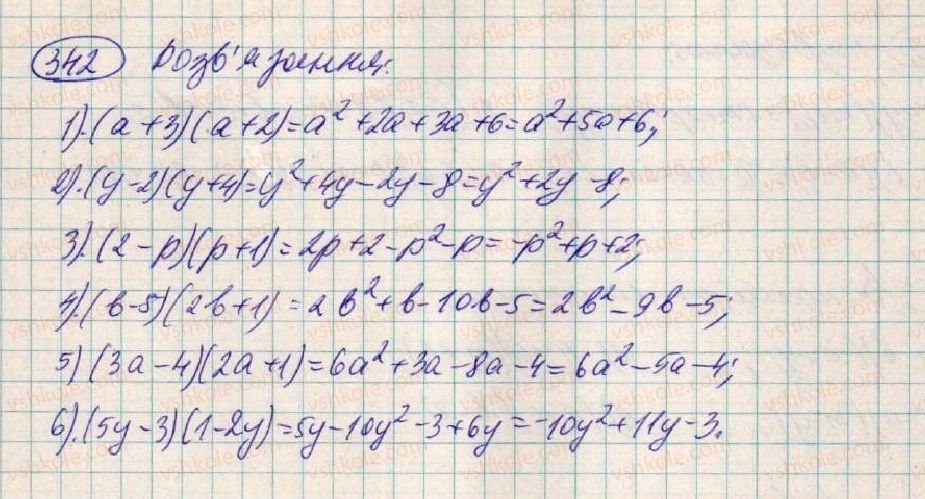 342 Розв'язання:
1).(a+3)(a+2)=a²+2a+3a+6=a²+5a+6;
2).(y-2)(y+4)=y²+4y-2y-8=y²+2y-8;
3).(2-p)(p+1)=2p+2-p²-p=-p²+p+2;
4).(b-5)(2b+1)=2b²+b-10b-5=2b²-9b-5;
5)(3a-4)(2a+1)=6a²+3a-8a-4=6a²-5a-4;
6).(5y-3)(1-2y)=5y-10y²-3+6y=-10y²+11y-3.